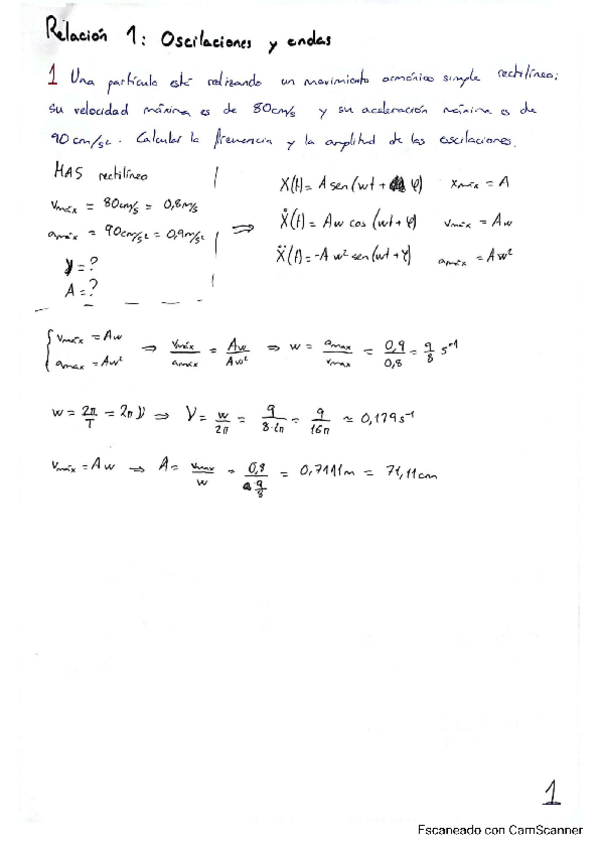 Relación 1: Oscilaciones y ondas
1 Una partícula está realizando un movimiento armónico simple rectilíneo;
su velocidad máxima es de 80cm/s y su aceleración máxima es de
90cm/s². Calcular la frecuencia y la amplitud de las oscilaciones.
MAS rectilíneo
vmáx = 80cm/s = 0,8m/s
amáx = 90cm/s² = 0,9m/s²
ν = ?
A = ?
⇒
X(t) = A sen(wt + φ) xmáx = A
Ẋ(t) = Aw cos(wt + φ) vmáx = Aw
Ẍ(t) = -Aw² sen(wt + φ) amáx = Aw²
{ vmáx = Aw
amax = Aw² ⇒ vmáx/amáx = Aw/Aw² ⇒ w = amax/vmax = 0,9/0,8 = 9/8 s⁻¹
w = 2π/T = 2πν ⇒ ν = w/2π = 9/8·2π = 9/16π ≃ 0,179s⁻¹
vmáx = Aw ⇒ A = vmax/w = 0,8/9/8 = 0,7111m = 71,11cm
1
Escaneado con CamScanner